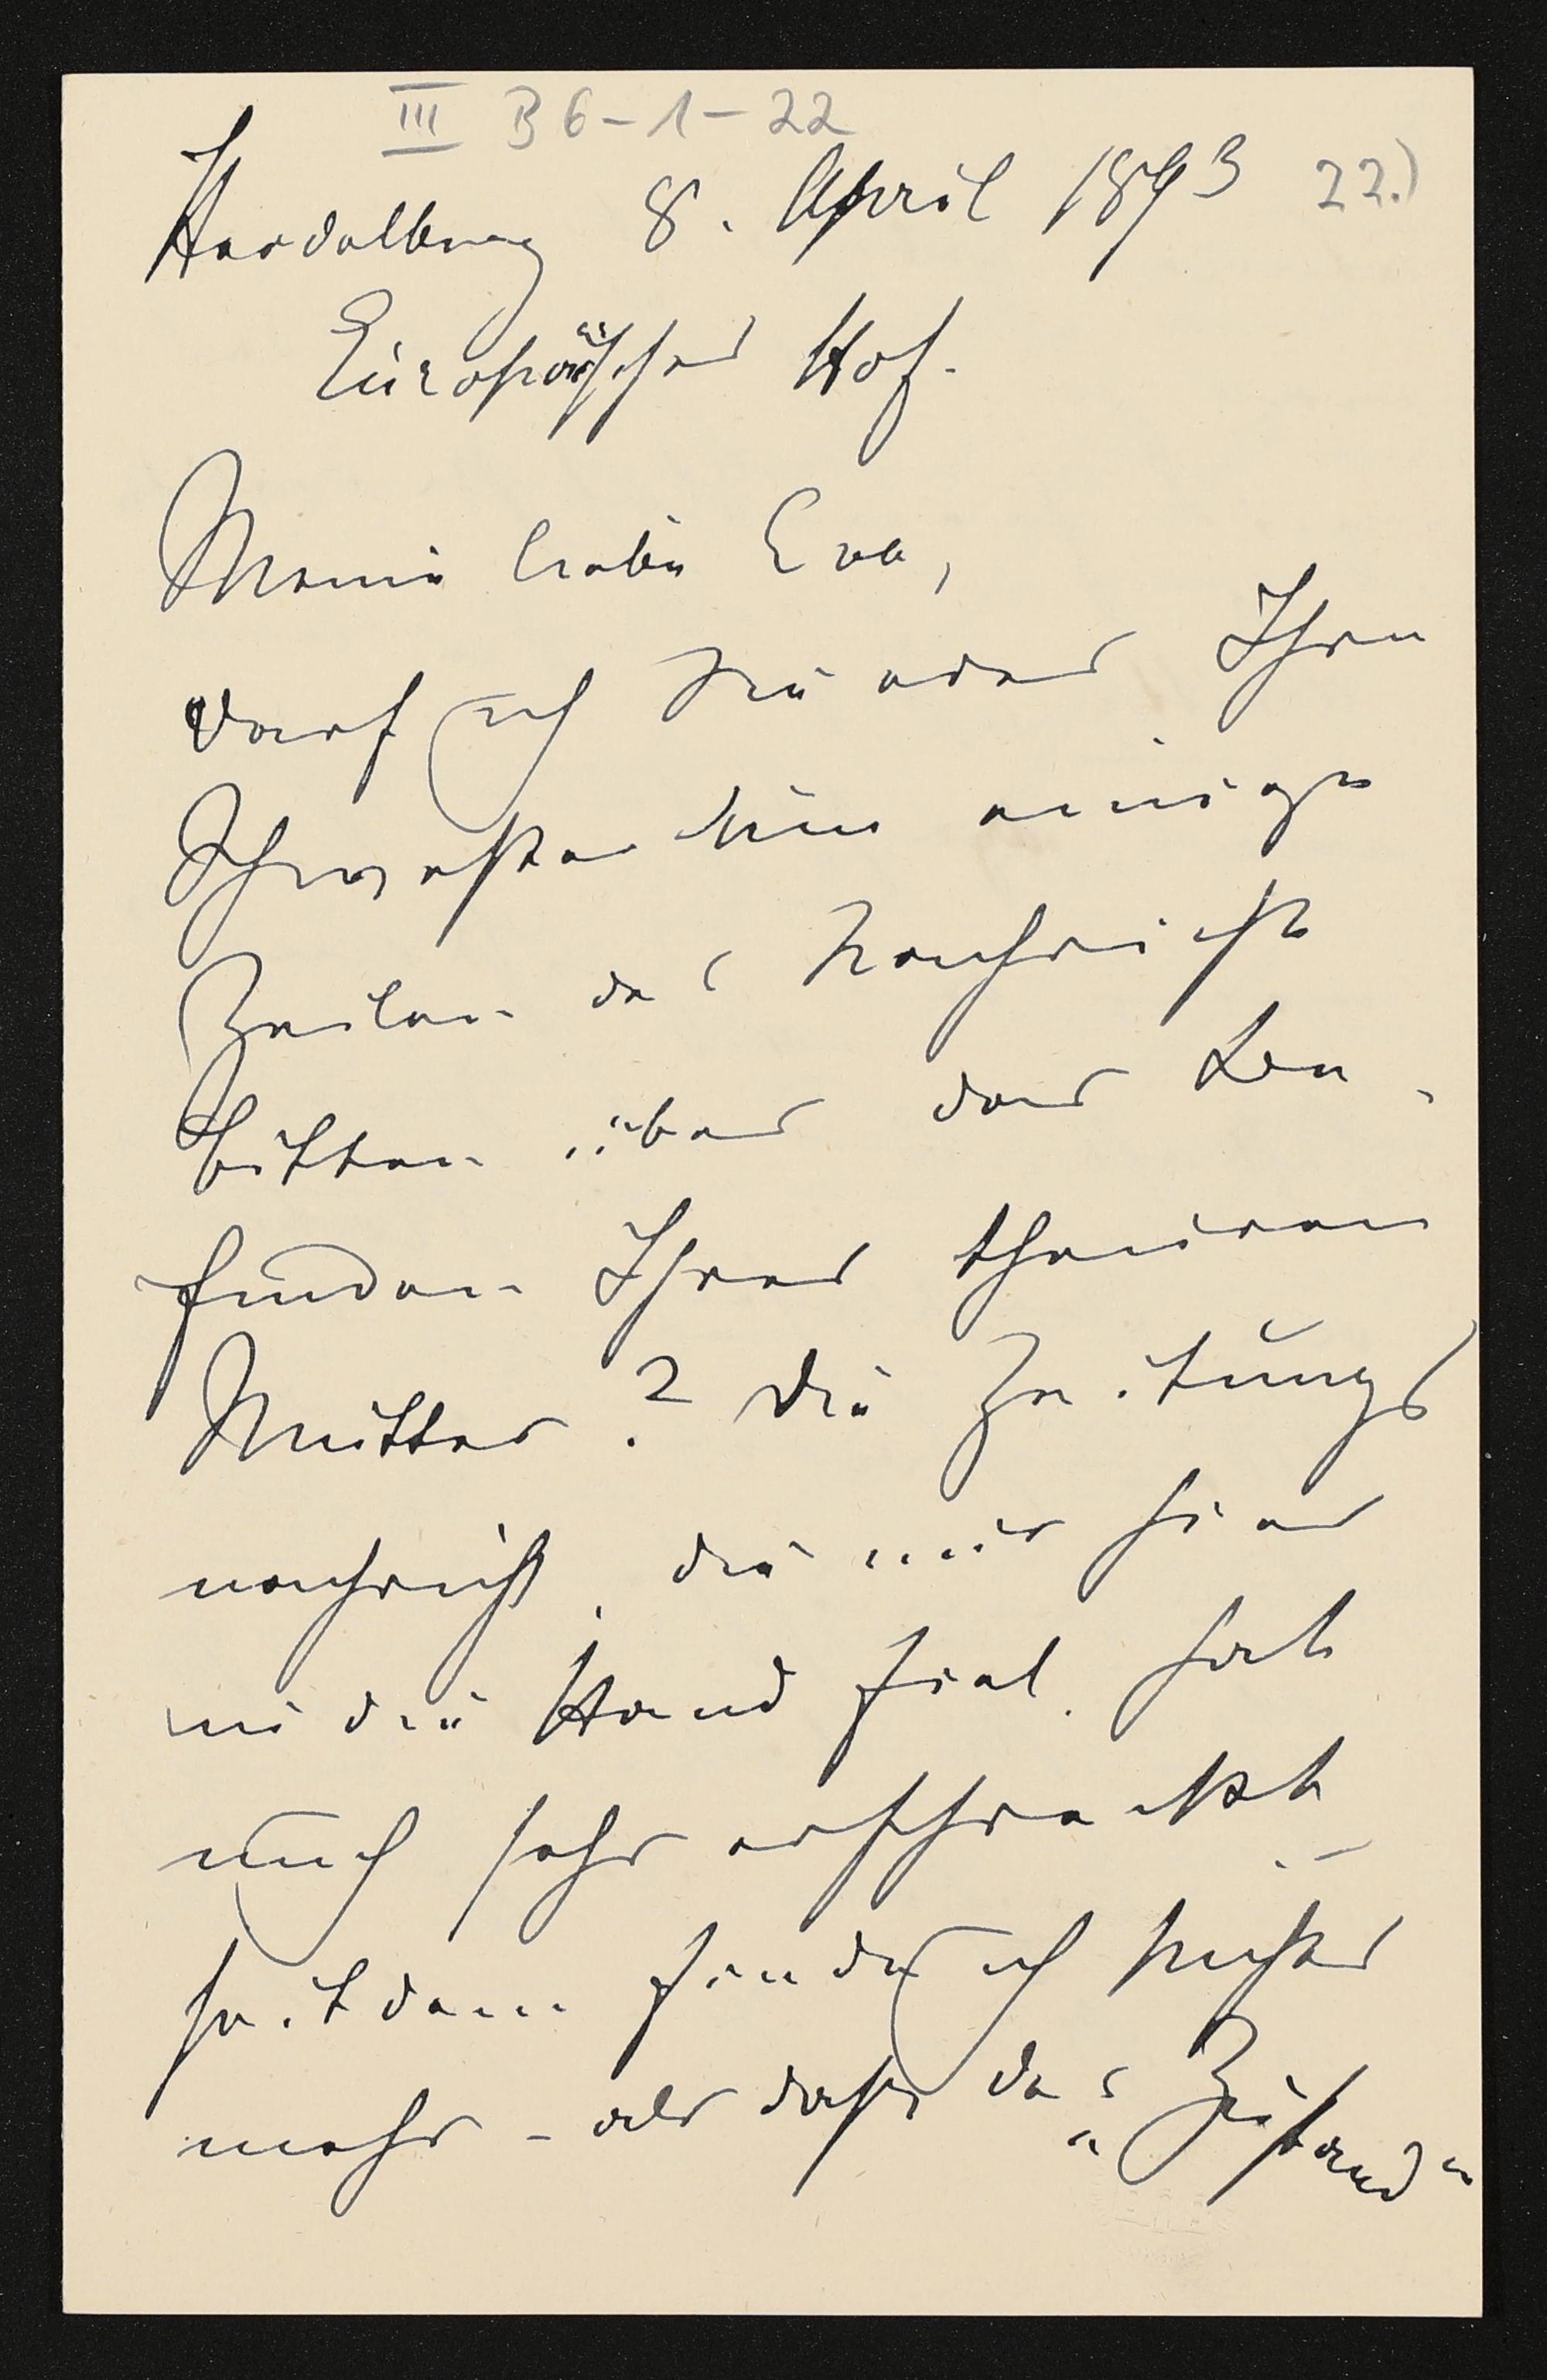 III B 6-1-22
Heidelberg 8. April 1893 22.)
Europäischer Hof.
Meine liebe Eva,
darf ich Sie oder Ihre
Schwester um einige
Zeilen der Nachricht
bitten über das Be-
finden Ihrer theuren
Mutter? Die Zeitungs
nachricht, die mir hier
in die Hand fiel, hat
mich sehr erschreckt. –
seitdem finde ich nichts
mehr – als daß der „Zustand"